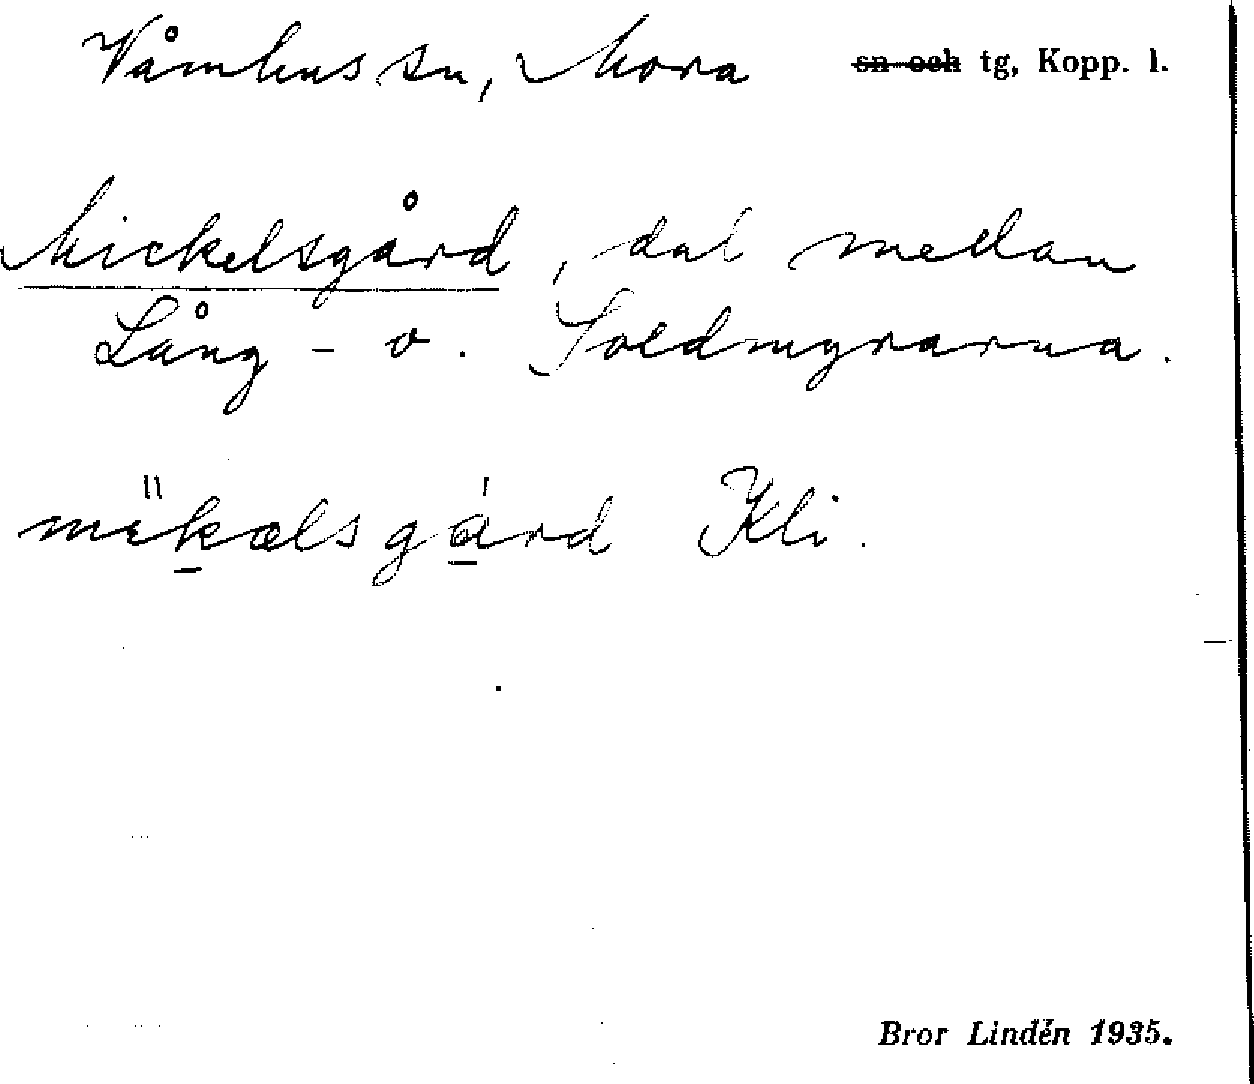 Våmhus sn, Mora sn och tg, Kopp. l.
Mickelsgård, dal mellan
Lång- o. Soldmyrarna.
mikælsgård Kli.
Bror Lindén 1935.